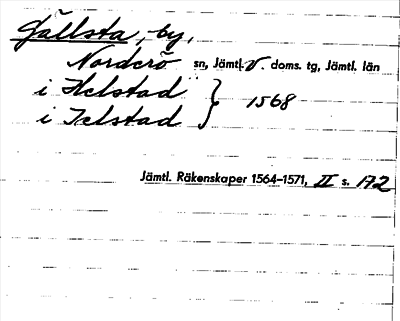 Gällsta, by,
Norderö sn, Jämtl. V. doms. tg, Jämtl. län
i Helstad } 1568
i Jelstad
Jämtl. Räkenskaper 1564–1571, II s. 172